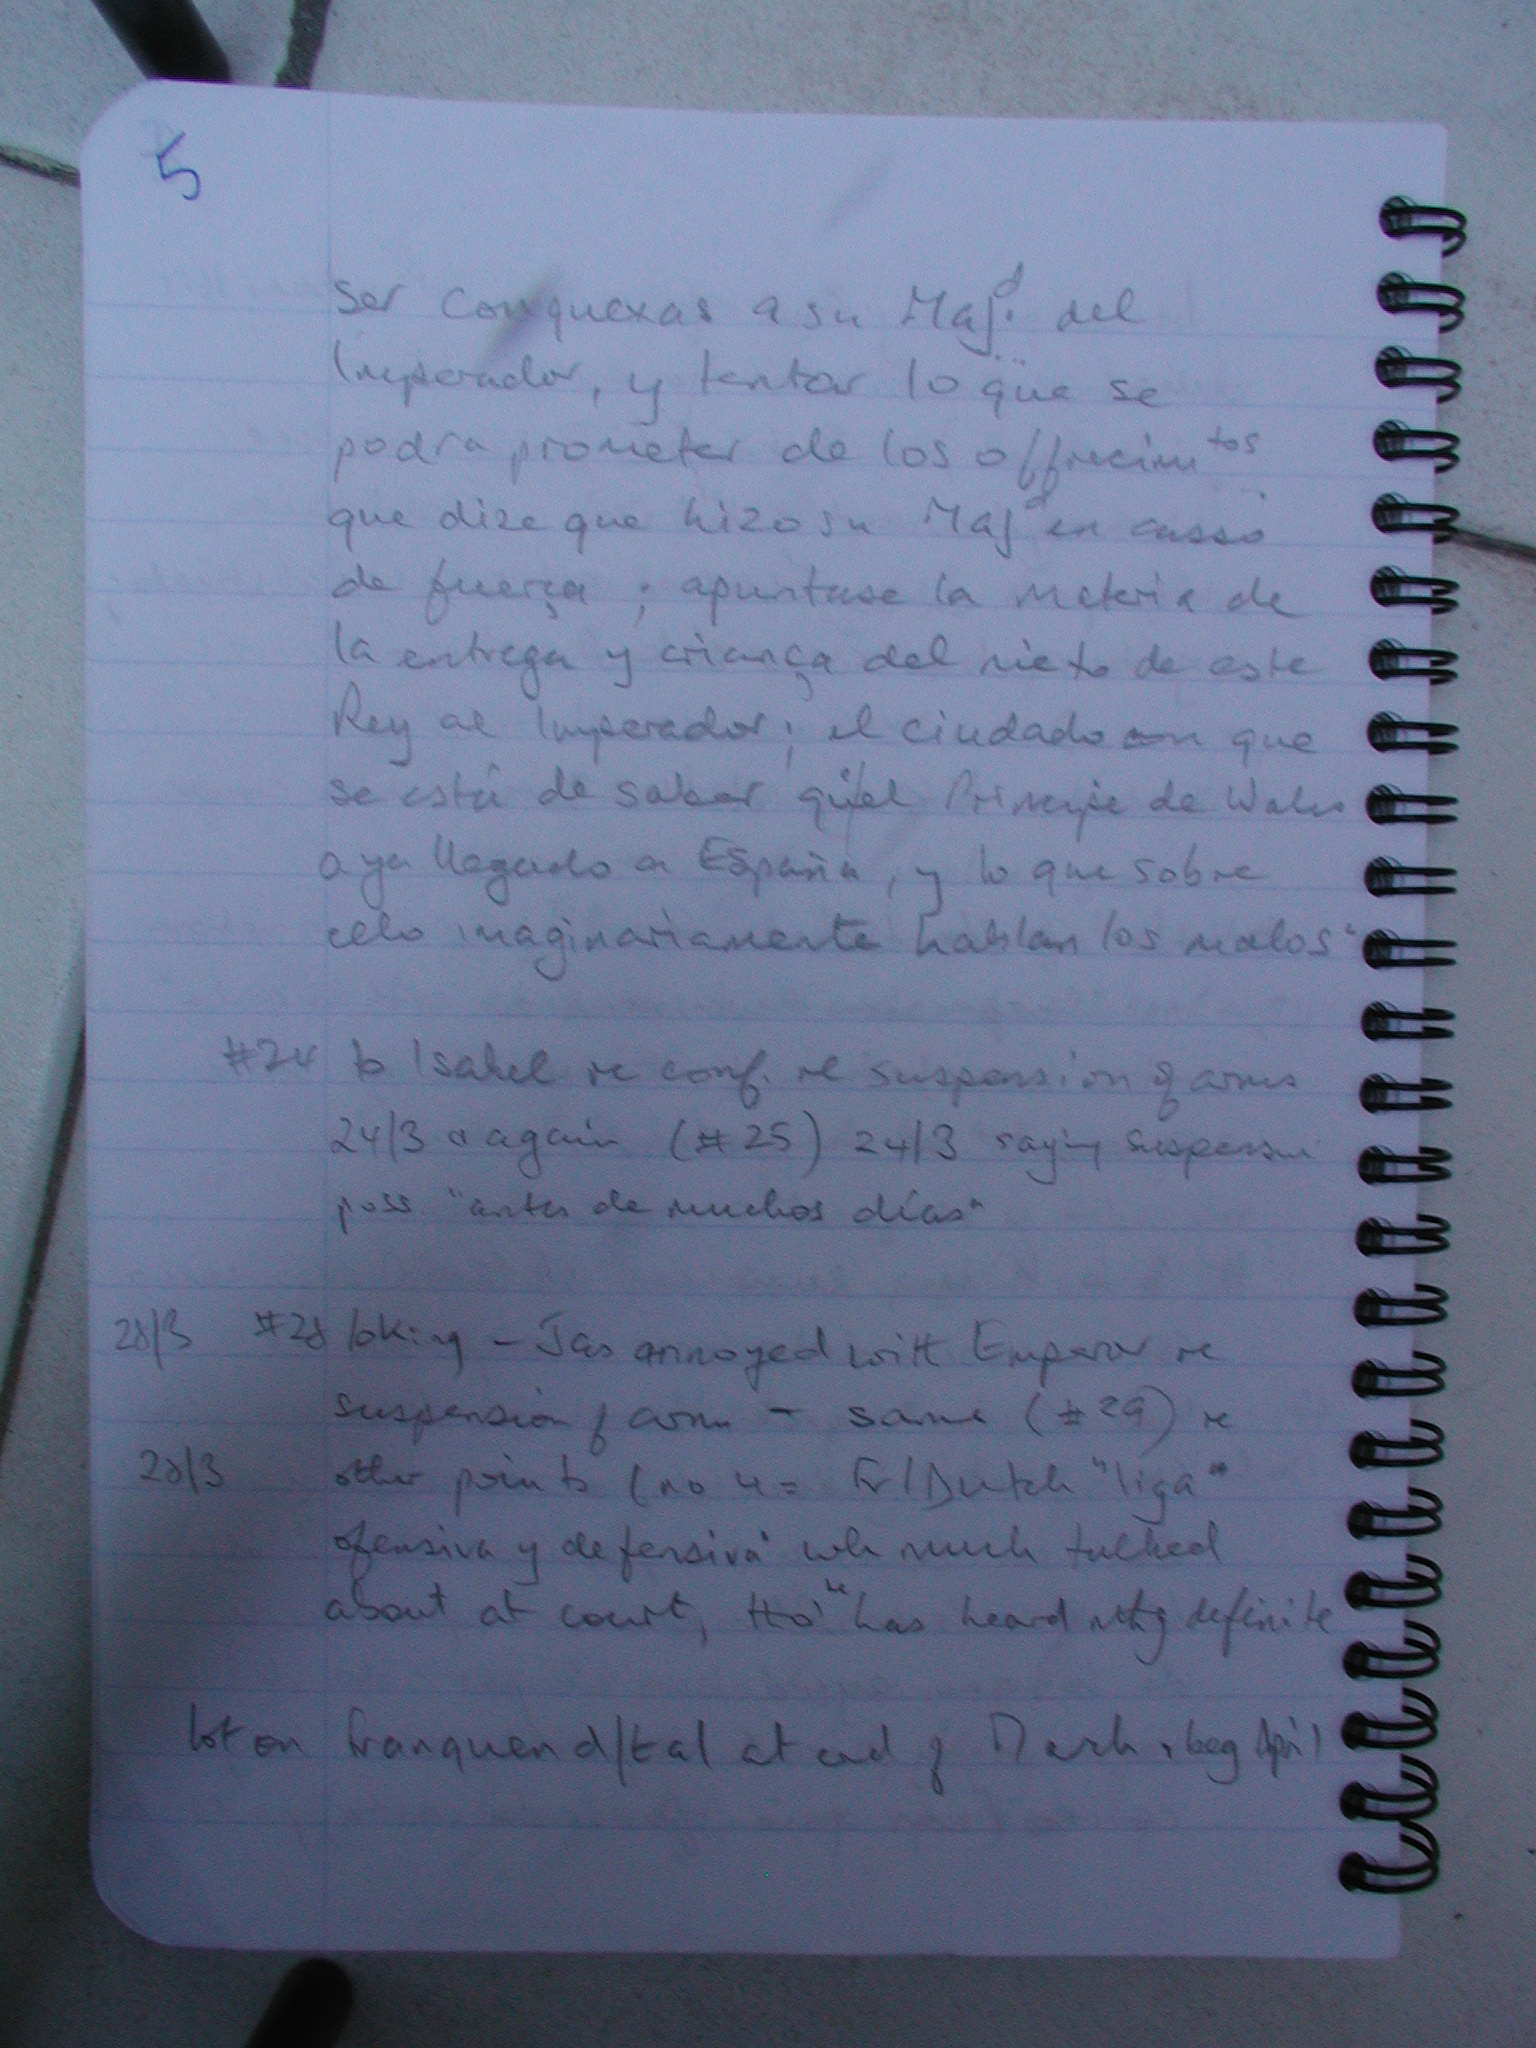 5
ser con quexas a su Magd. del
Imperador, y tentar lo que se
podra prometer de los offrecimtos
que dize que hizo su Magd en casso
de fuerça ; apuntase la materia de
la entrega y criança del nieto de este
Rey al Imperador ; el ciudado en que
se está de saber qu'el Principe de Wales
aya llegado a España, y lo que sobre
ello imaginariamente hablan los malos"
#24 to Isabel re conf. re suspension of arms
24/3 & again (#25) 24/3 saying suspension
poss "antes de muchos días"
28/3 #28 to King - Jas annoyed with Emperor re
suspension of arms - same (#29) re
28/3 other points (no 4 = Fr/Dutch "liga"
ofensiva y defensiva' wh much talked
about at court, tho' has heard nthg definite
lot on Franquendal at end of March & beg April